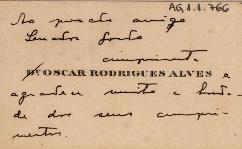 AG.1.1.766
Ao prezado amigo
Senador
cumprimenta
Dr. OSCAR RODRIGUES ALVES e
agradece muito a bonda-
de dos seus cumpri-
mentos.